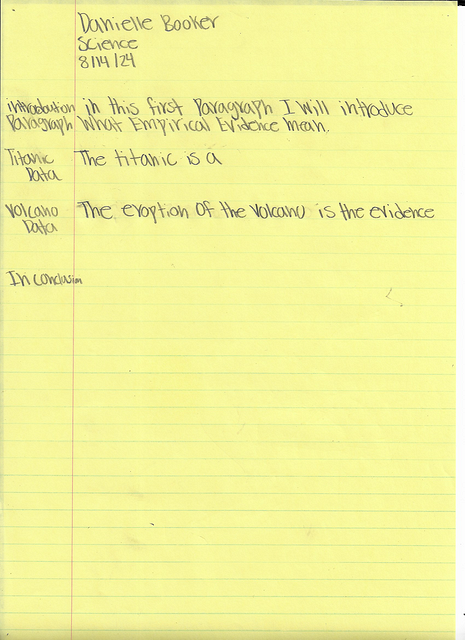 Danielle Booker
Science
8/14/24
introduction in this first Paragraph I Will introduce
Paragraph What Empirical Evidence mean.
Titanic The titanic is a
Data
Volcano The eroption Of the Volcano is the evidence
Data
In conclusion